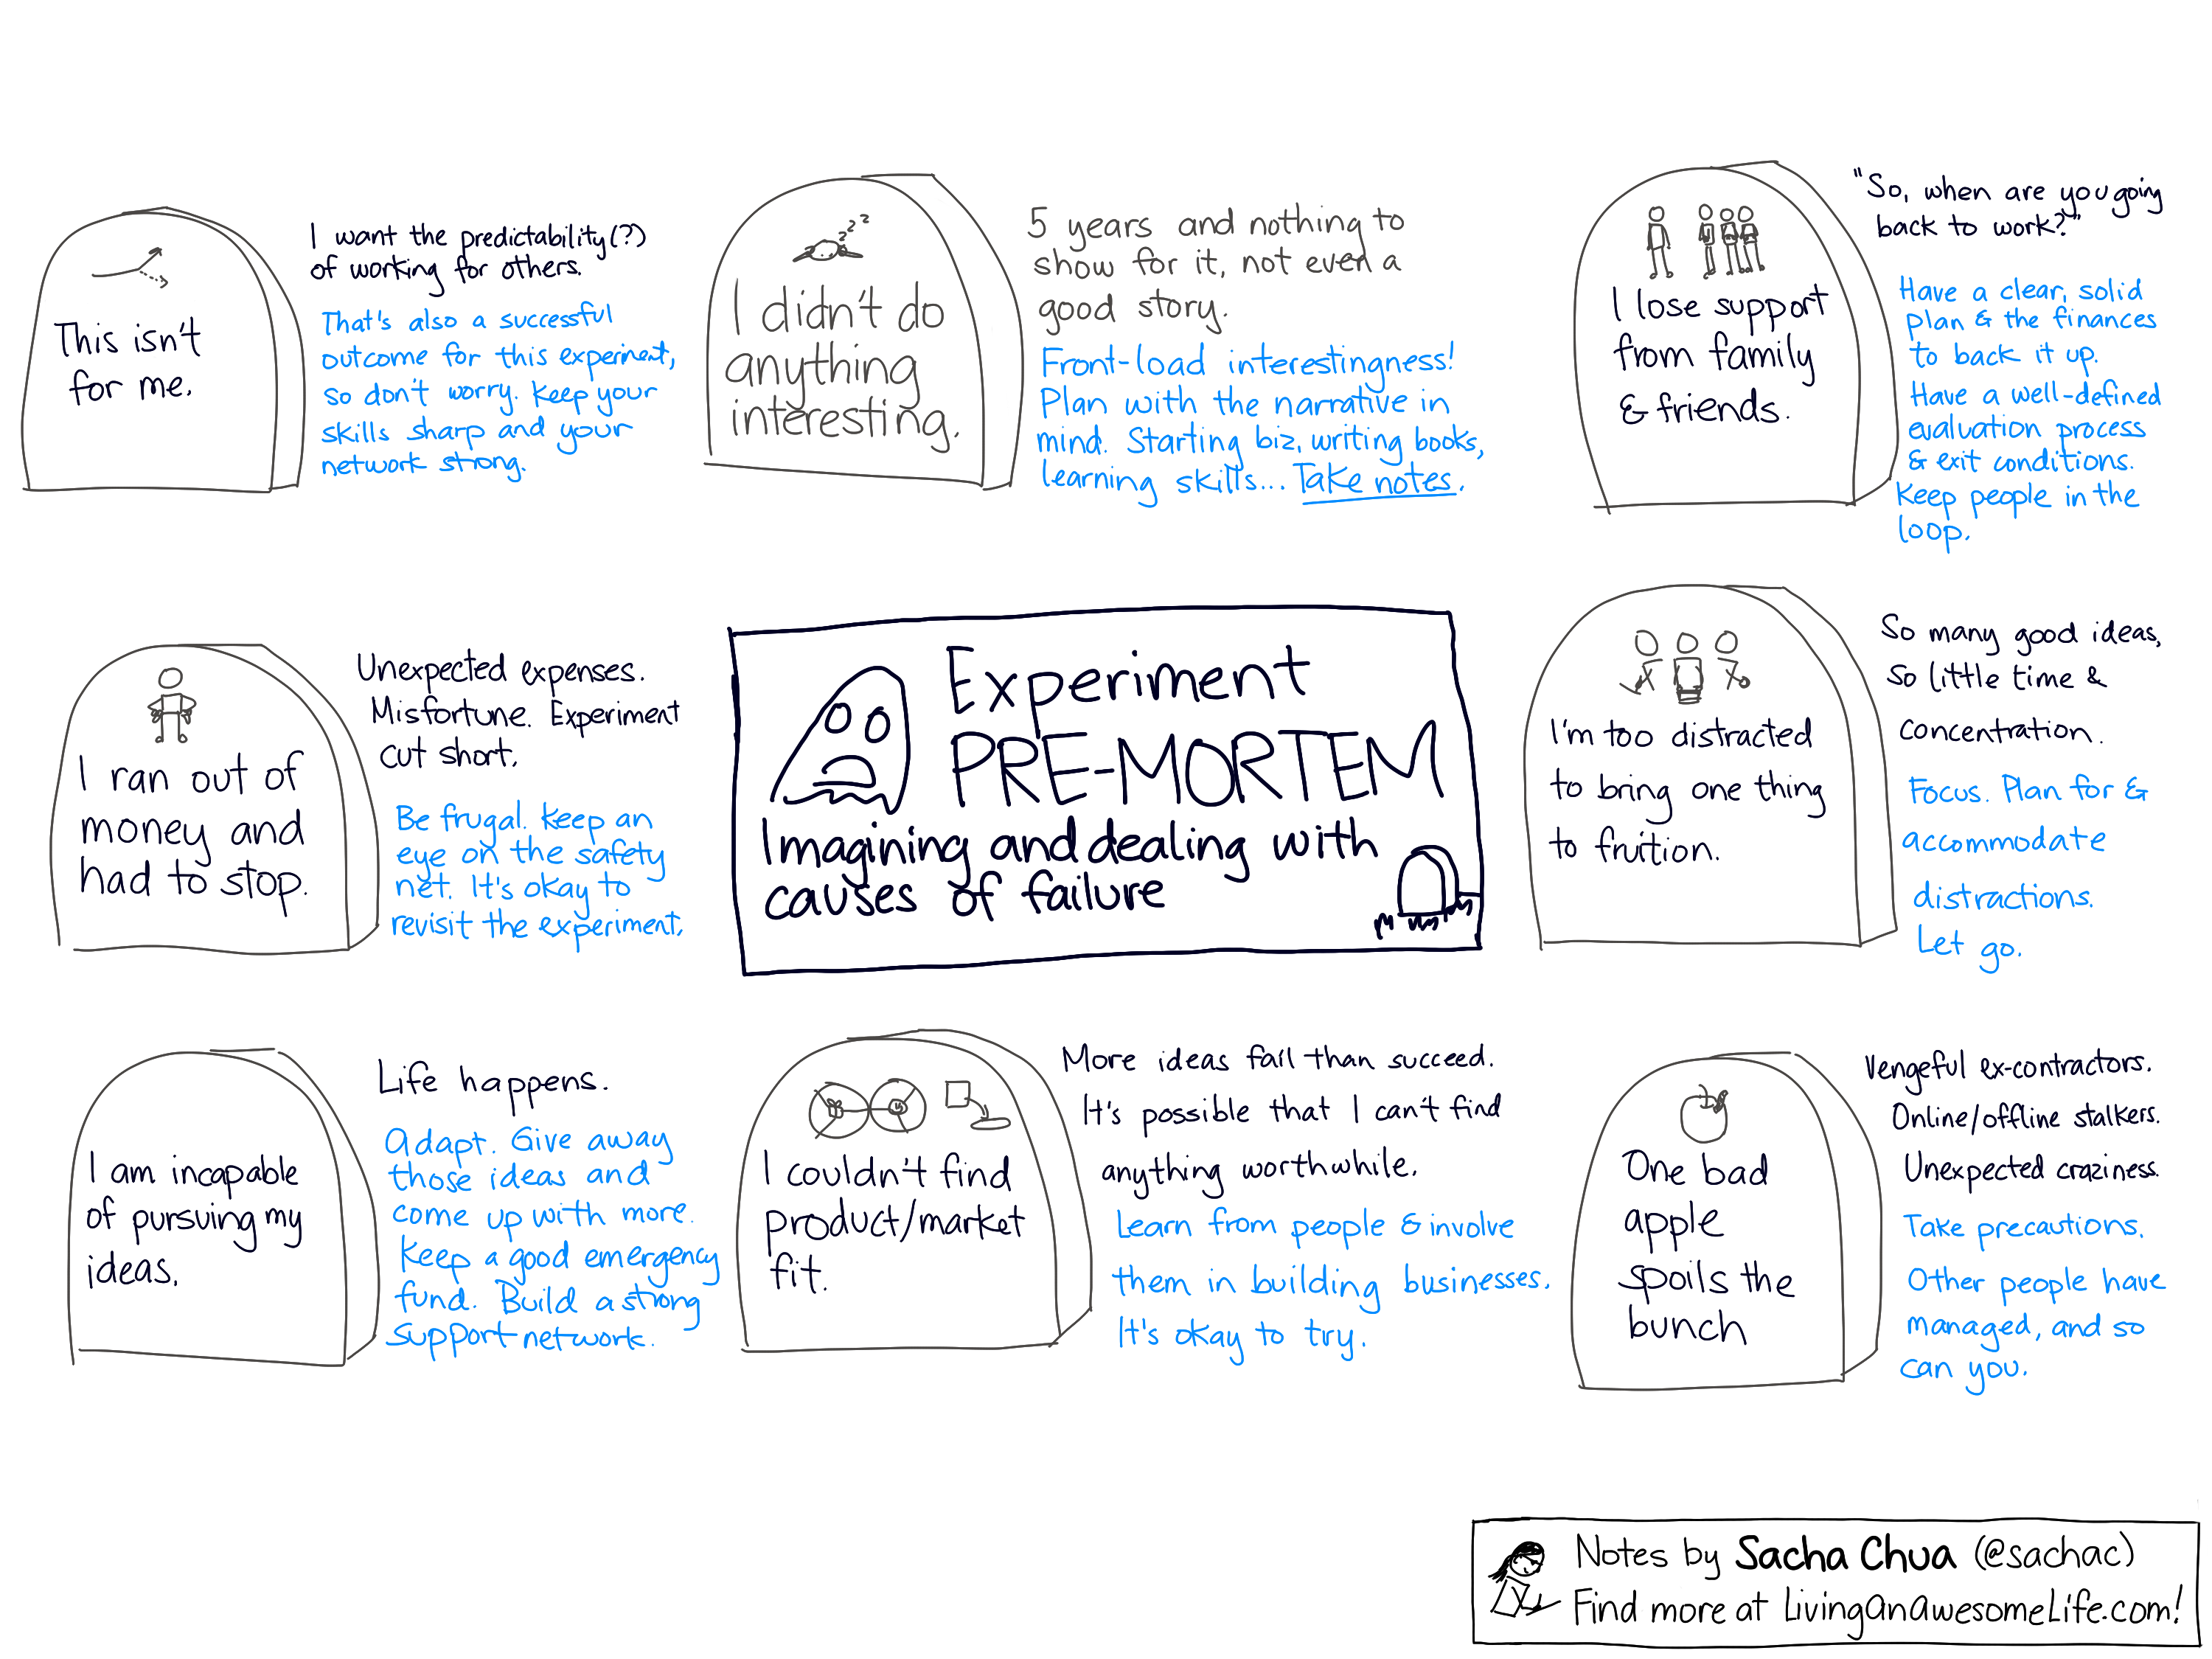 This isn't
for me.
I want the predictability(?)
of working for others.
That's also a successful
outcome for this experiment,
so don't worry. Keep your
skills sharp and your
network strong.
zzz
I didn't do
anything
interesting.
5 years and nothing to
show for it, not even a
good story.
Front-load interestingness!
Plan with the narrative in
mind. Starting biz, writing books,
learning skills... Take notes.
I lose support
from family
& friends.
"So, when are you going
back to work?"
Have a clear, solid
plan & the finances
to back it up.
Have a well-defined
evaluation process
& exit conditions.
Keep people in the
loop.
I ran out of
money and
had to stop.
Unexpected expenses.
Misfortune. Experiment
cut short.
Be frugal. Keep an
eye on the safety
net. It's okay to
revisit the experiment.
Experiment
PRE-MORTEM
Imagining and dealing with
causes of failure
I'm too distracted
to bring one thing
to fruition.
So many good ideas,
so little time &
concentration.
Focus. Plan for &
accommodate
distractions.
Let go.
I am incapable
of pursuing my
ideas.
Life happens.
Adapt. Give away
those ideas and
come up with more.
Keep a good emergency
fund. Build a strong
support network.
I couldn't find
product/market
fit.
More ideas fail than succeed.
It's possible that I can't find
anything worthwhile.
Learn from people & involve
them in building businesses.
It's okay to try.
One bad
apple
spoils the
bunch
Vengeful ex-contractors.
Online/offline stalkers.
Unexpected craziness.
Take precautions.
Other people have
managed, and so
can you.
Notes by Sacha Chua (@sachac)
Find more at LivingAnAwesomeLife.com!